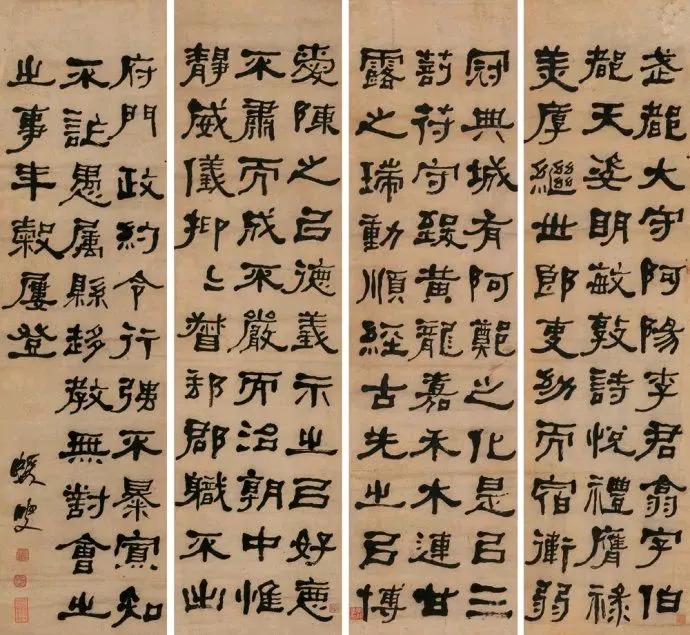 武都大守阿陽李君翕字伯
都天姿明敏敦詩悅禮膺祿
美厚繼世郎吏幼而宿衛弱
冠典城有阿鄭之化是㠯三
剖苻守致黃龍嘉禾木連甘
露之瑞動順經古先之㠯博
愛陳之㠯德義示之㠯好惡
不肅而成不嚴而治朝中惟
靜威儀抑〻督郵郡職不出
府門政約令行強不暴寡知
不詐愚屬縣趍教無對會之
之事年穀屢登
蝯叟